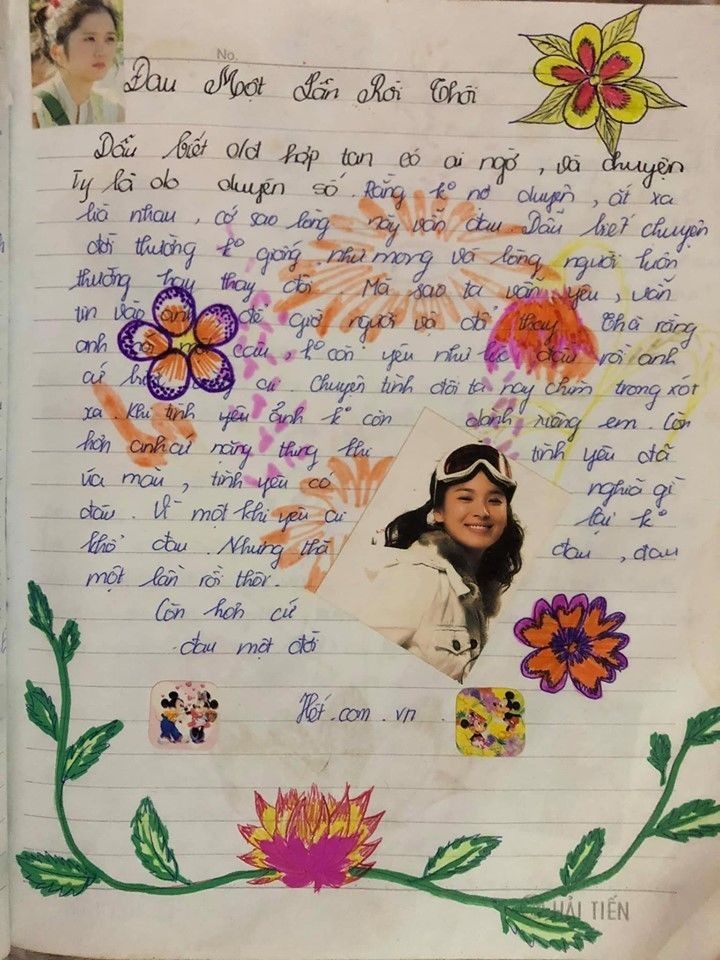 No.
Đau Một Lần Rồi Thôi
Dẫu biết old hợp tan có ai ngờ, và chuyện
Ty là do duyên số. Rằng k° nợ duyên, ắt xa
lìa nhau, cớ sao lòng này vẫn đau. Dẫu biết chuyện
đời thường k° giống như mong và lòng người luôn
thường hay thay đổi. Mà sao ta vẫn yêu, vẫn
tin vào anh để giờ người vội đổi thay. Thà rằng
anh nói một câu, k° còn yêu như lúc đầu rồi anh
cứ cứ. Chuyện tình đôi ta nay chìm trong xót
xa. Khi tình yêu ảnh k° còn dành riêng em. Còn
hơn anh cứ nặng thing khi tình yêu đã
úa màu, tình yêu có nghĩa gì
đâu. Vì một khi yêu ai lại k°
khổ đau. Nhưng thà đau, đau
một lần rồi thôi.
Còn hơn cứ
đau một đời
Hết.com.vn.
HẢI TIẾN